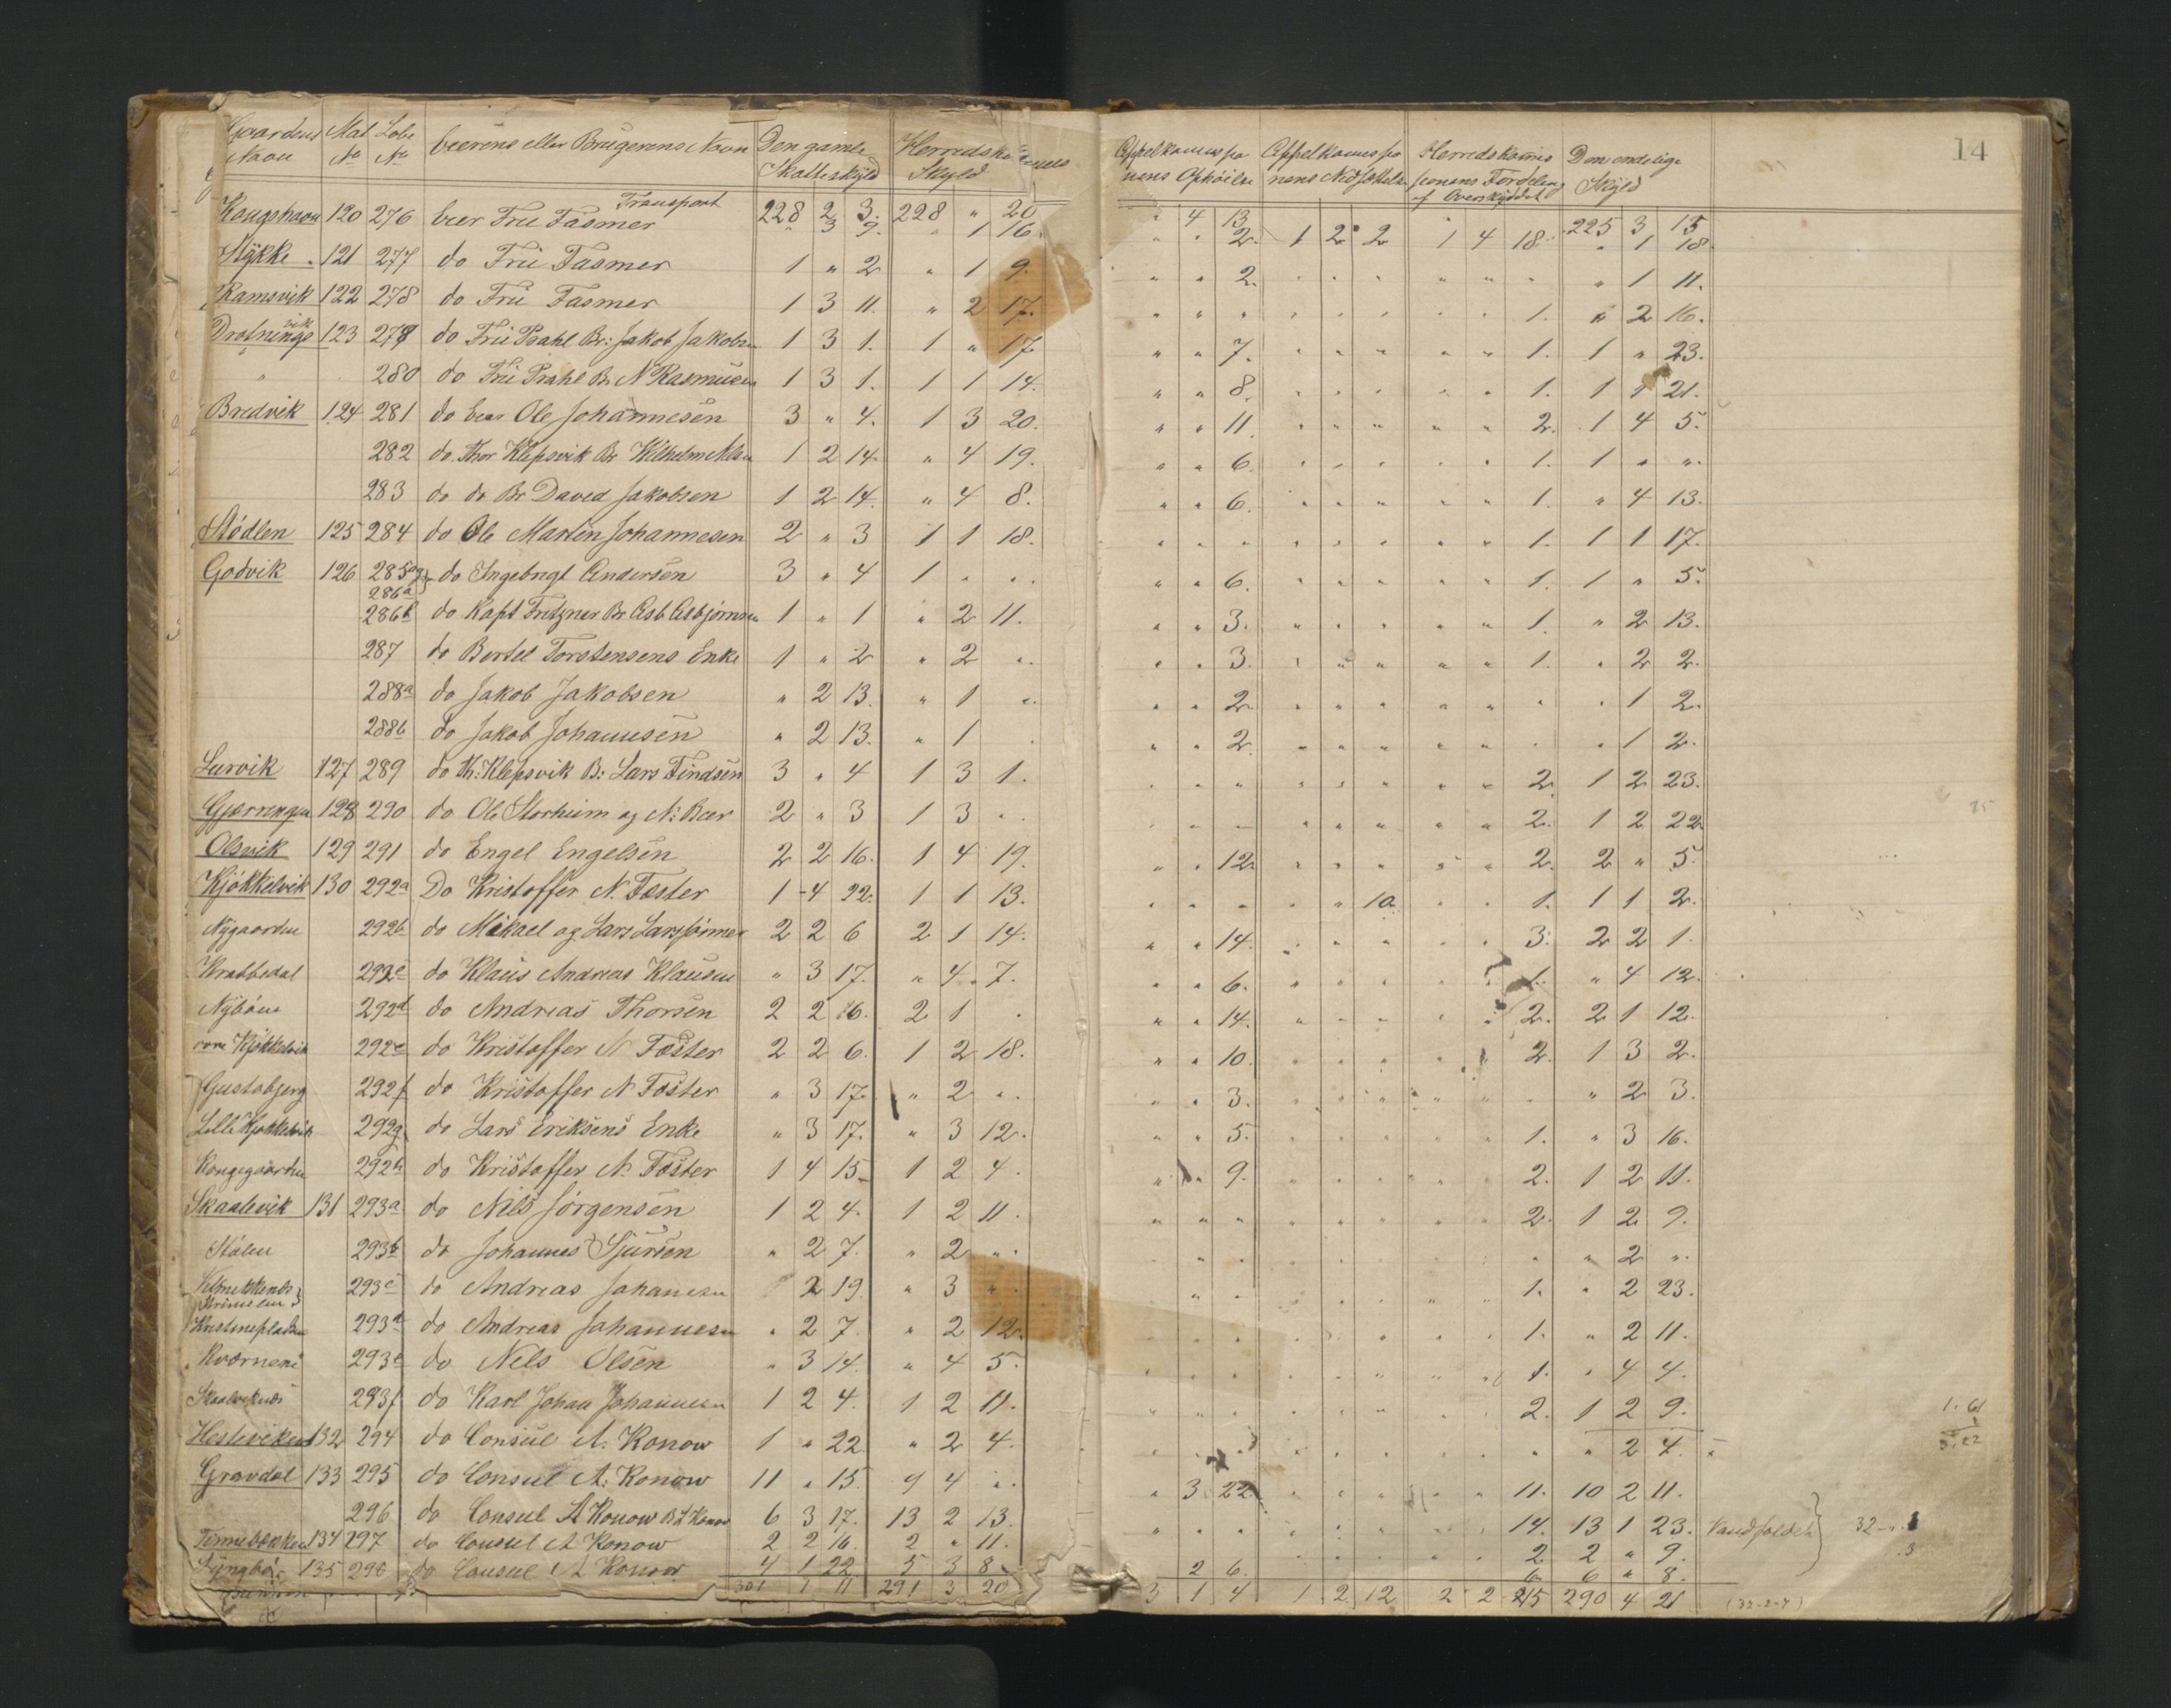 14
Gaardens Navn | Mat No | Løbe No | Eierens eller Brugerens Navn | Den gamle Skatteskyld | Herredskomisions Skyld | Appelkommissionens Ophøielse | Appelkommissionens Nedsættelse | Herredskomissionens Fordeling af Overskyddet | Den endelige Skyld
Transport | 228 2 3. | 228 " 20 | " 4 13 | 1 2 2 | 1 4 18. | 225 3 15
Kongshavn | 120 | 276 | Eier Fru Fasmer | " 3 9. | " 1 16. | " " 2. | " 1 18.
Stykke | 121 | 277 | do Fru Fasmer | 1 " 2 | " 1 9. | " " 2. | " " " | " " " | " 1 11.
Ramsvik | 122 | 278 | do Fru Fasmer | 1 3 11. | " 2 17. | " " " | " " " | " " 1. | " 2 16.
Drotningsvik | 123 | 279 | do Fru Prahl Br: Jakob Jakobsen | 1 3 1. | 1 " 17. | " " 7. | " " " | " " 1. | 1 " 23.
" | 280 | do Fru Prahl Br. N Rasmusen | 1 3 1. | 1 1 14. | " " 8. | " " " | " " 1. | 1 1 21.
Bredvik | 124 | 281 | do Eier Ole Johannesen | 3 " 4. | 1 3 20. | " " 11. | " " " | " " 2. | 1 4 5.
282 | do Thor Klepsvik Br Wilhelm Nilsen | 1 2 14. | " 4 19. | " " 6. | " " " | " " 1. | 1 " ".
283 | do do Br David Jakobsen | 1 2 14. | " 4 8. | " " 6. | " " " | " " 1. | " 4 13.
Stødlen | 125 | 284 | do Ole Martin Johannesen | 2 " 3 | 1 1 18. | " " " | " " " | " " 1. | 1 1 17.
Godvik | 126 | 285 og 286a | do Ingebrigt Andersen | 3 " 4 | 1 " " | " " 6. | " " " | " " 1. | 1 " 5.
286b | do Kapt Fritzner Br Asb Asbjørnsen | 1 " 1 | " 2 11. | " " 3. | " " " | " " 1. | " 2 13.
287 | do Bertel Torstensens Enke | 1 " 2 | " 2 " | " " 3. | " " " | " " 1. | " 2 2.
288a | do Jakob Jakobsen | " 2 13. | " 1 " | " " 2. | " " " | " " " | " 1 2.
288b | do Jakob Johannesen | " 2 13. | " 1 | " " 2. | " " " | " " " | " 1 2.
Lurvik | 127 | 289 | do Th: Klepsvik B: Lars Findsen | 3 " 4 | 1 3 1. | " " " | " " " | " " 2. | 1 2 23.
Gjerringen | 128 | 290 | do Ole Storheim og N: Beer | 2 " 3 | 1 3 " | " " " | " " " | " " 2. | 1 2 22.
Olsvik | 129 | 291 | do Engel Engelsen | 2 2 16. | 1 4 19. | " " 12. | " " " | " " 2. | 2 " 5.
Kjøkkelvik | 130 | 292a | Do Kristoffer N. Foster | 1 4 22. | 1 1 13. | " " " | " " 10 | " " 1. | 1 1 2.
Nygaarden | 292b | do Mikael og Lars Larssønner | 2 2 6 | 2 1 14. | " " 14. | " " " | " " 3. | 2 2 1.
Krabbedal | 292c | do Klaus Andreas Klausen | " 3 17. | " 4 7. | " " 6. | " " " | " " 1. | " 4 12.
Nybøen | 292d | do Andreas Thorsen | 2 2 16. | 2 1 " | " " 14. | " " " | " " 2. | 2 1 12.
Kjøkkelvik | 292e | do Kristoffer N Foster | 2 2 6. | 1 2 18. | " " 10. | " " " | " " 2. | 1 3 2.
Gustabjerg | 292f | do Kristoffer N Foster | " 3 17. | " 2 " | " " 3. | " " " | " " " | " 2 3.
Lille Kjøkkelvik | 292g | do Lars Eriksens Enke | " 3 17. | " 3 12. | " " 5. | " " " | " " 1. | " 3 16.
Kongegaarden | 292h | do Kristoffer N. Foster | 1 4 15 | 1 2 4. | " " 9. | " " " | " " 2. | 1 2 11.
Skaalevik | 131 | 293a | do Nils Jørgensen | 1 2 4. | 1 2 11. | " " " | " " " | " " 2. | 1 2 9.
Stølen | 293b | do Johannes Sjursen | " 2 7. | " 2 " | " " " | " " " | " 2 ".
293c | do Andreas Johannesen | 2 19. | " 3 " | " " " | " " 1. | " 2 23.
Kristinepladsen | 293d | do Andreas Johannesen | " 2 7. | " 2 12. | " " " | " " 1. | " 2 11.
Kværnene | 293e | do Nels Olsen | " 3 14. | " 4 5. | " " " | " " 1. | " 4 4.
Skaalviknæs | 293f | do Karl Johan Johannesen | 1 2 4. | 1 2 11. | " " " | " " 2. | 1 2 9. | 1.61
Hesteviken | 132 | 294 | do Consul A. Konow | 1 " 22. | " 2 4. | " " " | " " " | " 2 4.
Gravdal | 133 | 295 | do Consul A. Konow | 11 " 15. | 9 4 " | " 3 22. | " " " | " " 11. | 10 2 11.
296 | do Consul A Konow B. A Konow | 6 3 17. | 13 2 13. | " " " | " " " | 14. | 13 1 23. | Vandfaldet
Tennebekken | 134 | 297 | do Consul A Konow | 2 2 16. | 2 " 11. | " " " | 2 | 2 " 9.
Lyngbø | 135 | 298 | do Consul A Konow | 4 1 22. | 5 3 8. | 2 6. | 6. | 6 " 8.
301 1 11 | 291 3 20 | 3 1 4 | 1 2 12 | 2 2 215 | 290 4 21 | (32-2-7)